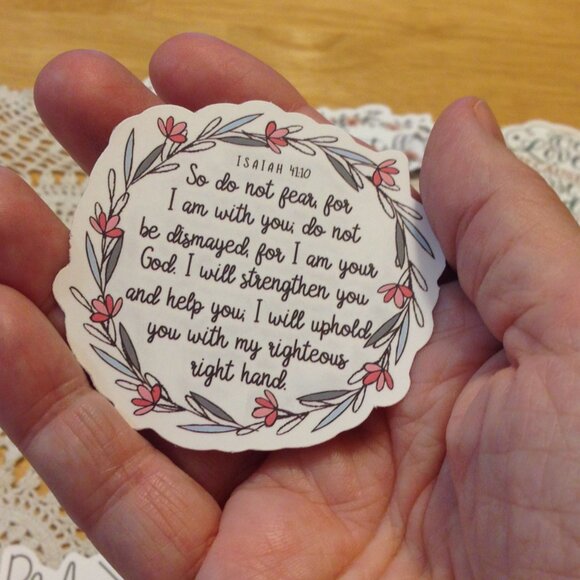 ISAIAH 41:10
So do not fear, for
I am with you; do not
be dismayed, for I am your
God. I will strengthen you
and help you; I will uphold
you with my righteous
right hand.